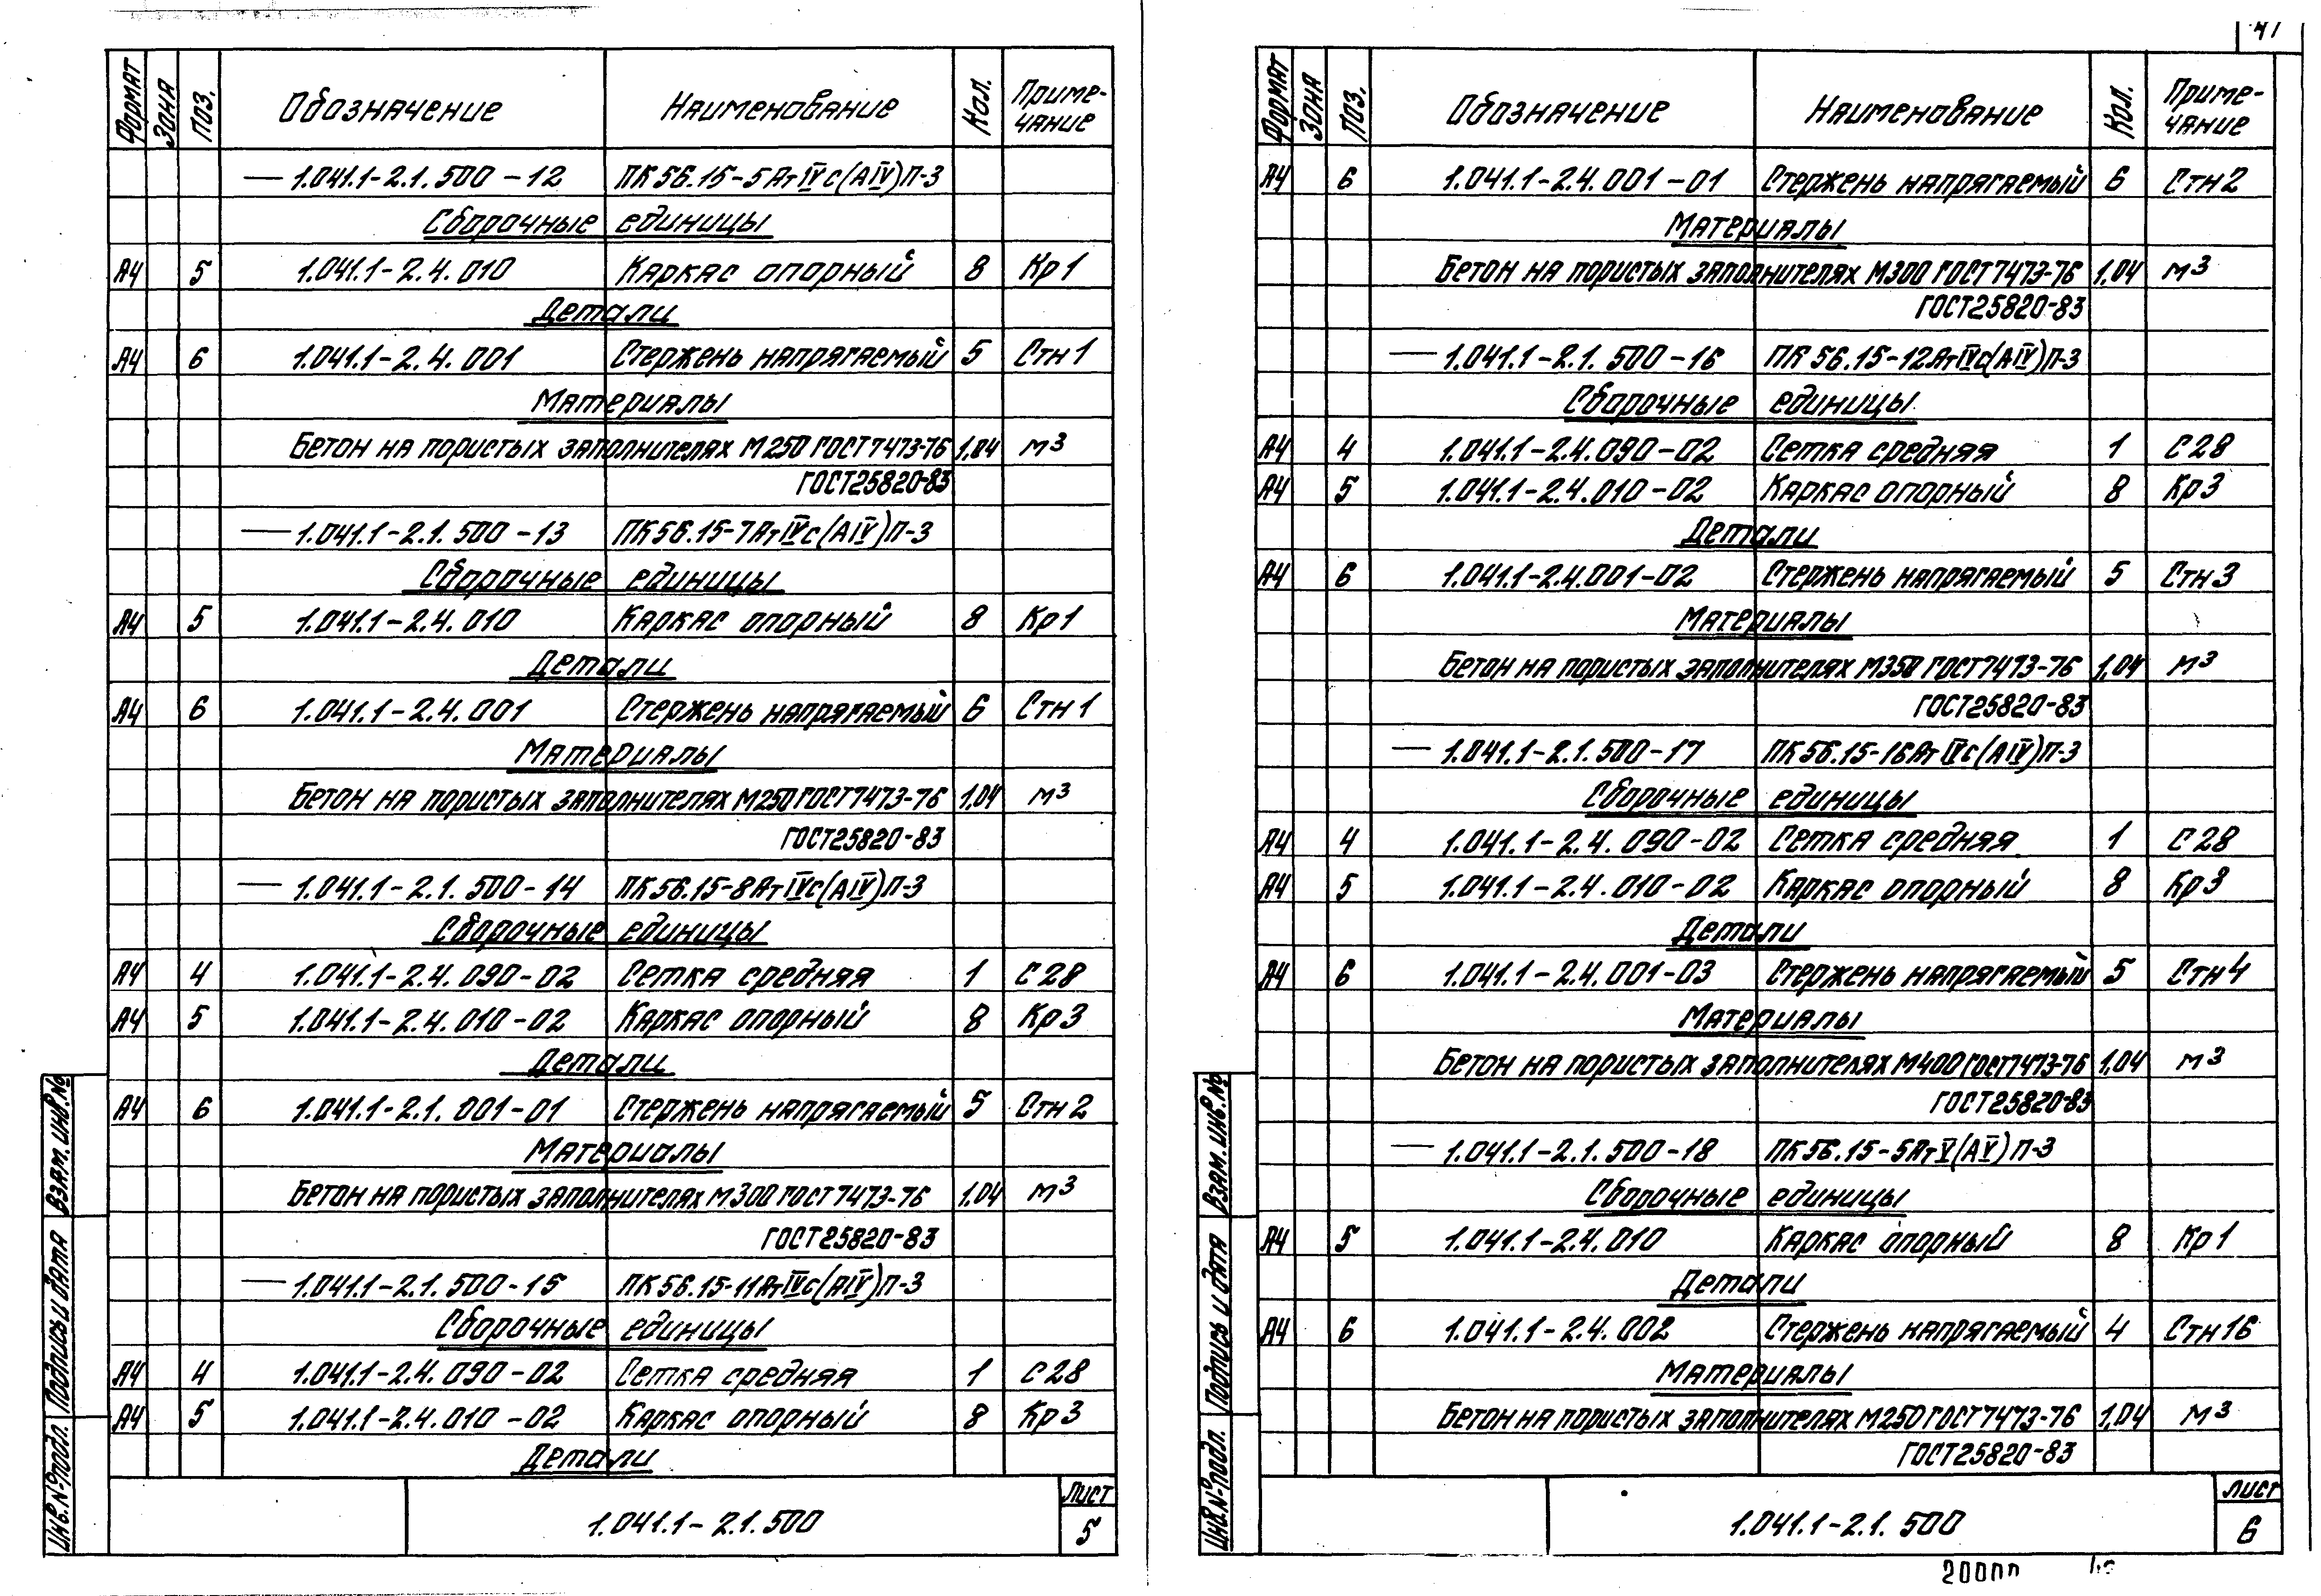 41
Формат Зона Поз. Обозначение Наименование Кол. Приме-
чание
— 1.041.1-2.1.500-12 ПК56.15-5АтIVс(АIV)П-3
Сборочные единицы
А4 5 1.041.1-2.4.010 Каркас опорный 8 Кр1
Детали
А4 6 1.041.1-2.4.001 Стержень напрягаемый 5 Стн1
Материалы
Бетон на пористых заполнителях М250 ГОСТ7473-76 1,04 м3
ГОСТ25820-83
— 1.041.1-2.1.500-13 ПК56.15-7АтIVс(АIV)П-3
Сборочные единицы
А4 5 1.041.1-2.4.010 Каркас опорный 8 Кр1
Детали
А4 6 1.041.1-2.4.001 Стержень напрягаемый 6 Стн1
Материалы
Бетон на пористых заполнителях М250 ГОСТ7473-76 1,04 м3
ГОСТ25820-83
— 1.041.1-2.1.500-14 ПК56.15-8АтIVс(АIV)П-3
Сборочные единицы
А4 4 1.041.1-2.4.090-02 Сетка средняя 1 С28
А4 5 1.041.1-2.4.010-02 Каркас опорный 8 Кр3
Детали
А4 6 1.041.1-2.1.001-01 Стержень напрягаемый 5 Стн2
Материалы
Бетон на пористых заполнителях М300 ГОСТ7473-76 1,04 м3
ГОСТ25820-83
— 1.041.1-2.1.500-15 ПК56.15-11АтIVс(АIV)П-3
Сборочные единицы
А4 4 1.041.1-2.4.090-02 Сетка средняя 1 С28
А4 5 1.041.1-2.4.010-02 Каркас опорный 8 Кр3
Детали
Инв.№ подл. Подпись и дата Взам. инв.№
1.041.1-2.1.500
Лист
5
Формат Зона Поз. Обозначение Наименование Кол. Приме-
чание
А4 6 1.041.1-2.4.001-01 Стержень напрягаемый 6 Стн2
Материалы
Бетон на пористых заполнителях М300 ГОСТ7473-76 1,04 м3
ГОСТ25820-83
— 1.041.1-2.1.500-16 ПК56.15-12АтIVс(АIV)П-3
Сборочные единицы
А4 4 1.041.1-2.4.090-02 Сетка средняя 1 С28
А4 5 1.041.1-2.4.010-02 Каркас опорный 8 Кр3
Детали
А4 6 1.041.1-2.4.001-02 Стержень напрягаемый 5 Стн3
Материалы
Бетон на пористых заполнителях М350 ГОСТ7473-76 1,04 м3
ГОСТ25820-83
— 1.041.1-2.1.500-17 ПК56.15-16АтIVс(АIV)П-3
Сборочные единицы
А4 4 1.041.1-2.4.090-02 Сетка средняя 1 С28
А4 5 1.041.1-2.4.010-02 Каркас опорный 8 Кр3
Детали
А4 6 1.041.1-2.4.001-03 Стержень напрягаемый 5 Стн4
Материалы
Бетон на пористых заполнителях М400 ГОСТ7473-76 1,04 м3
ГОСТ25820-83
— 1.041.1-2.1.500-18 ПК56.15-5АтV(АV)П-3
Сборочные единицы
А4 5 1.041.1-2.4.010 Каркас опорный 8 Кр1
Детали
А4 6 1.041.1-2.4.002 Стержень напрягаемый 4 Стн16
Материалы
Бетон на пористых заполнителях М250 ГОСТ7473-76 1,04 м3
ГОСТ25820-83
Инв.№ подл. Подпись и дата Взам. инв.№
1.041.1-2.1.500
Лист
6